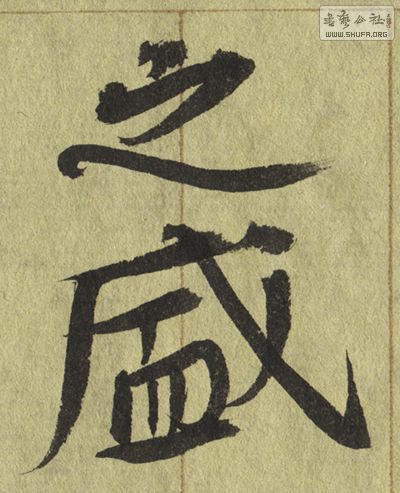 之盛
書藝公社
WWW.SHUFA.ORG